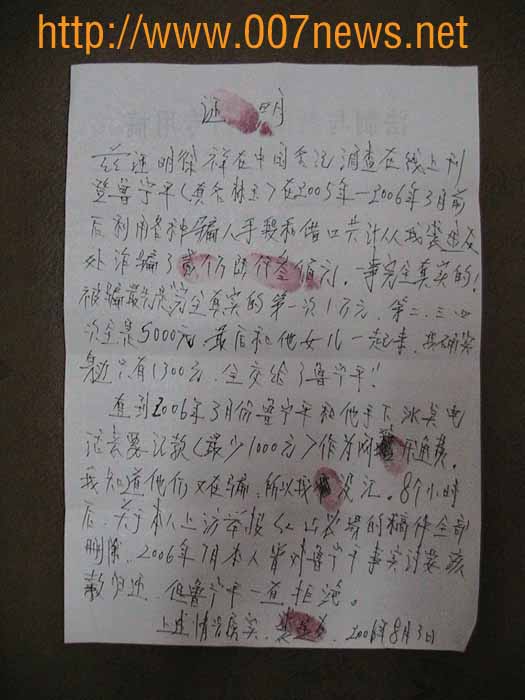 http://www.007news.net
证 明
兹证明 祥在中国 记调查在线上刊
登鲁宁平(真名林 )在2005年—2006年3月前
后利用各种骗人手段和借口共计从我
处诈骗了贰万 仟叁佰元,事完全真实的!
被骗 是完全真实的第一次1万元,第二、三、四
次全是5000元,最后和他女儿一起来,
只有1300元,全交给了鲁宁平!
直到2006年3月份鲁宁平和他手下 电
话 要汇款(最少1000元)作为网 开通费,
我知道他们又在骗,所以我 没汇。8个小时
后,关于本人上访举报 的稿件全部
删除,2006年7月本人 对鲁宁平事实讨要该
款归还,但鲁宁平一直拒绝。
上述情况属实。 2006年8月3日